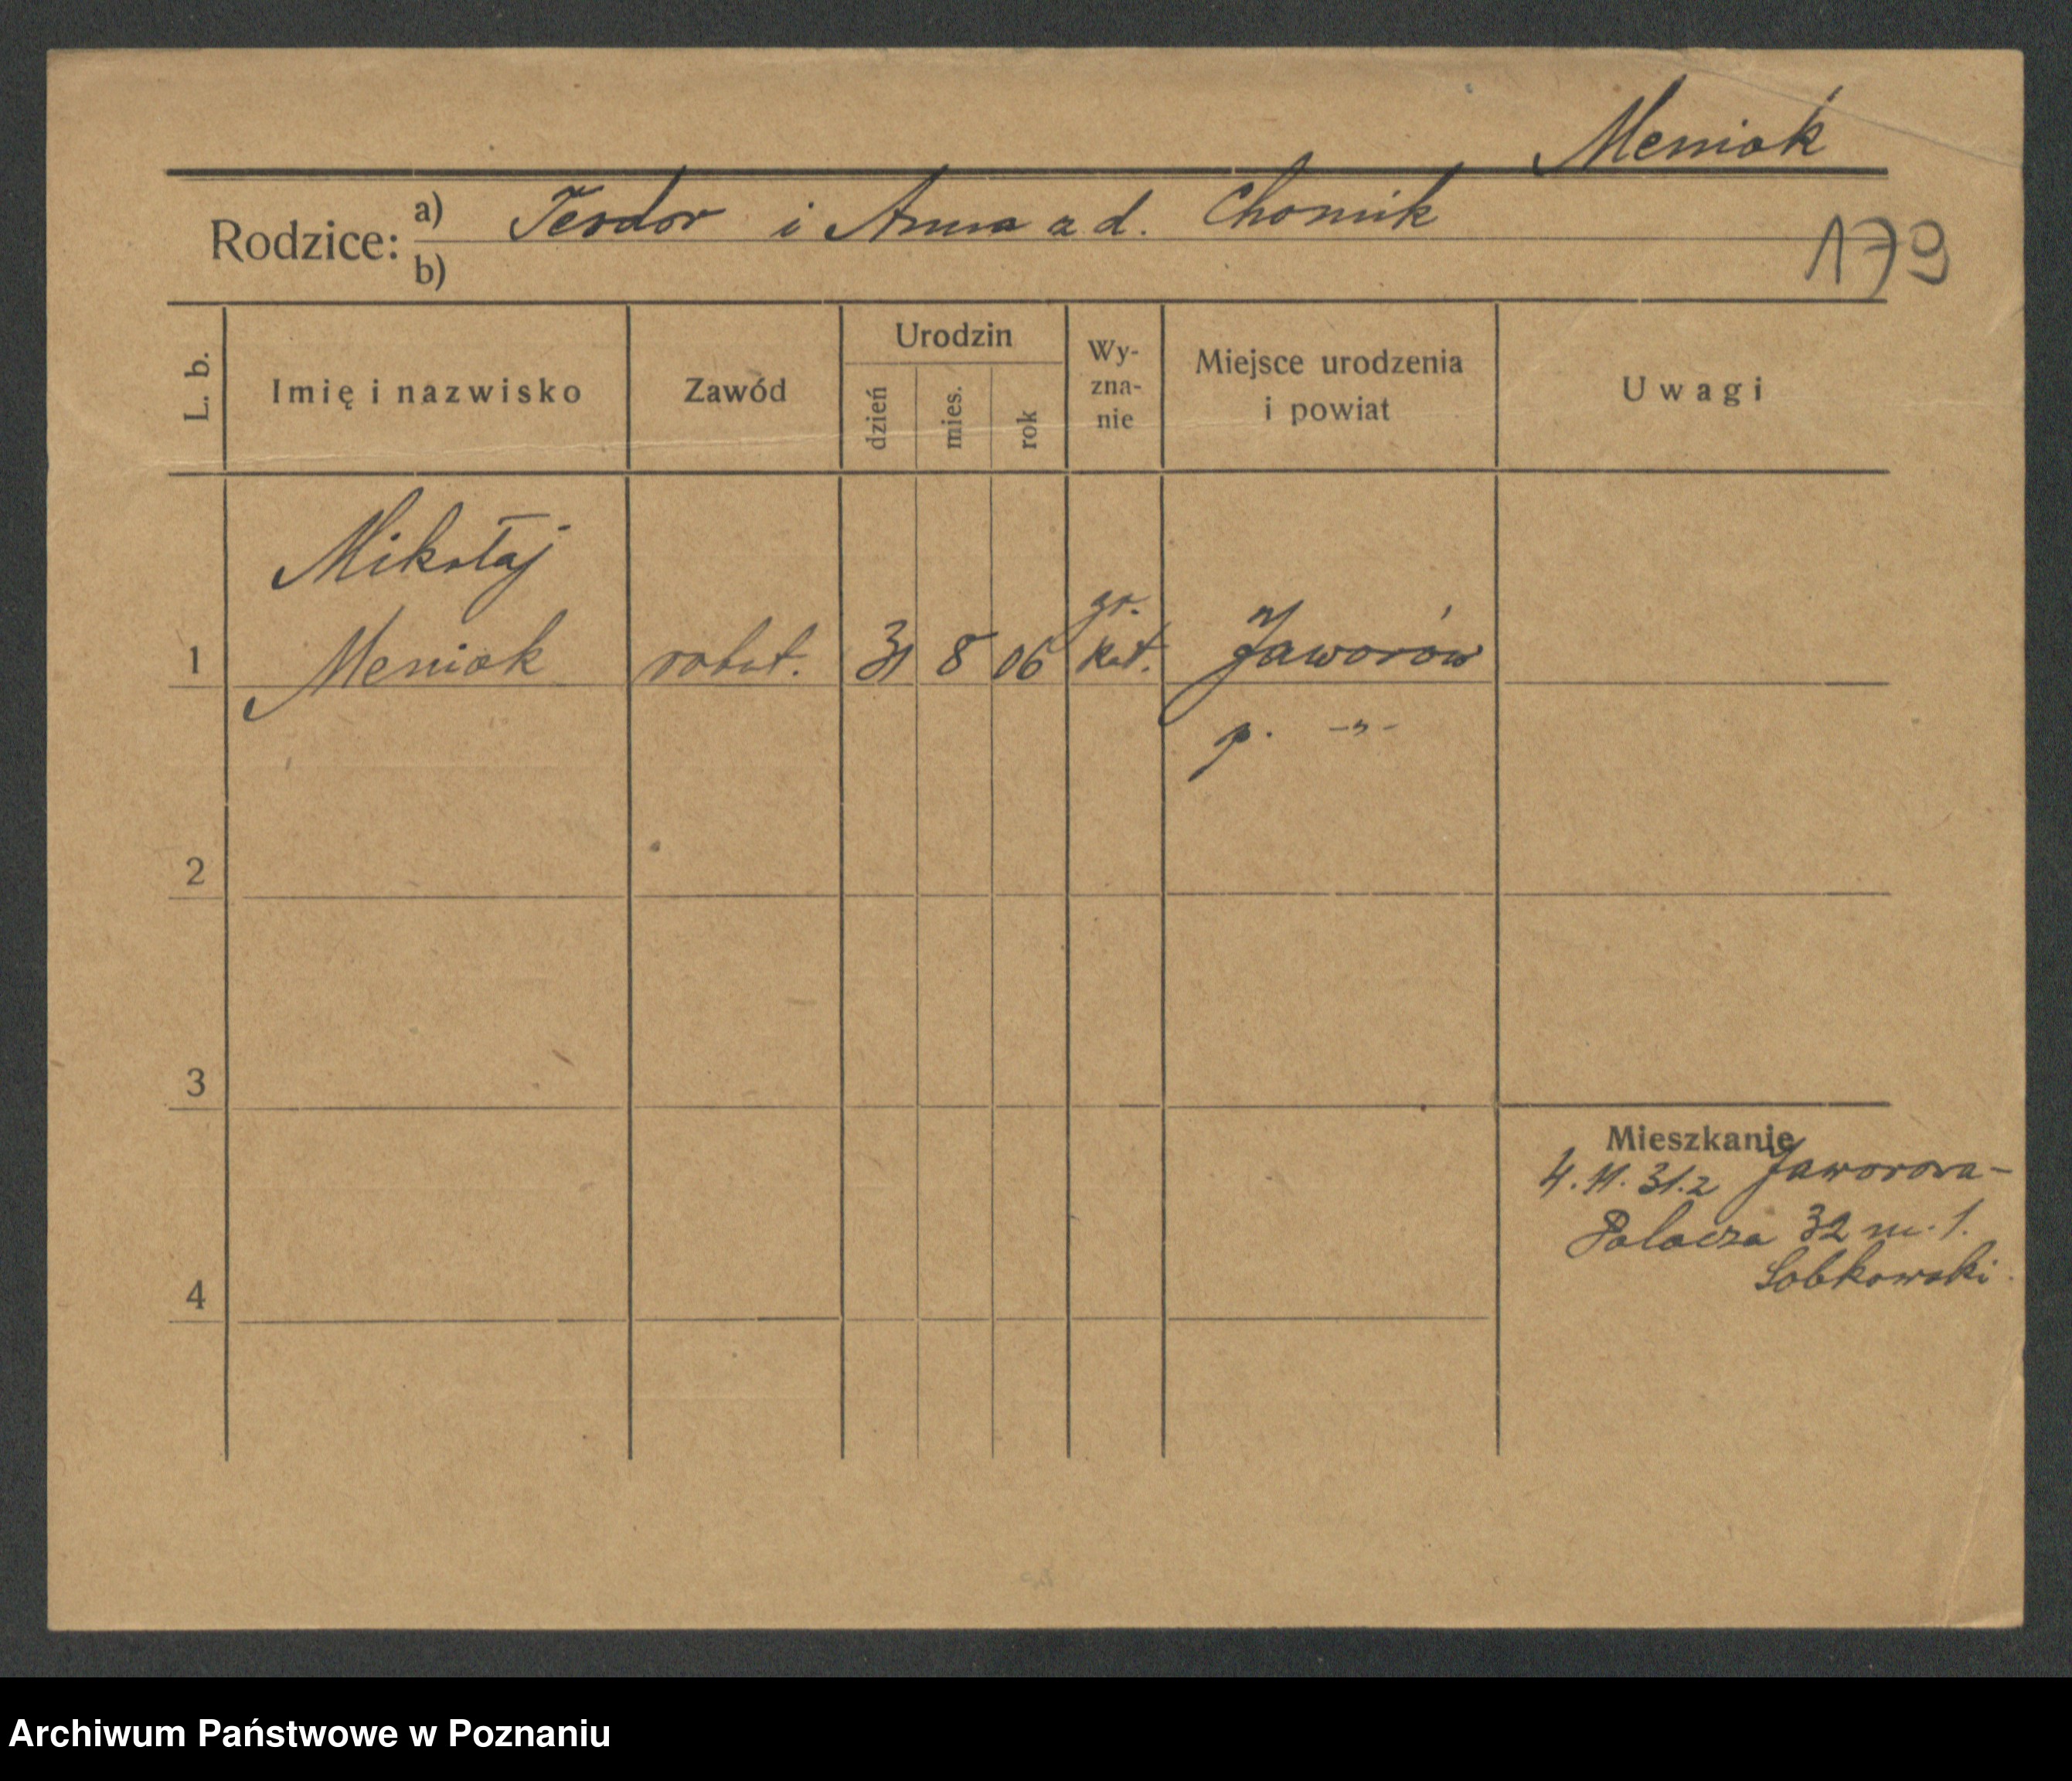 Meniak
Rodzice: a) Teodor i Anna z d. Chomik
b)
179
L. b.
Imię i nazwisko
Zawód
Urodzin
dzień
mies.
rok
Wy-
zna-
nie
Miejsce urodzenia
i powiat
Uwagi
Mikołaj
gr.
1 Meniak robot. 31 8 06 kat. Jaworów
p. -"-
2
3
Mieszkanie
4. 11. 31. z Jaworowa-
Palacza 32 m. 1.
Sobkowski.
4
Archiwum Państwowe w Poznaniu